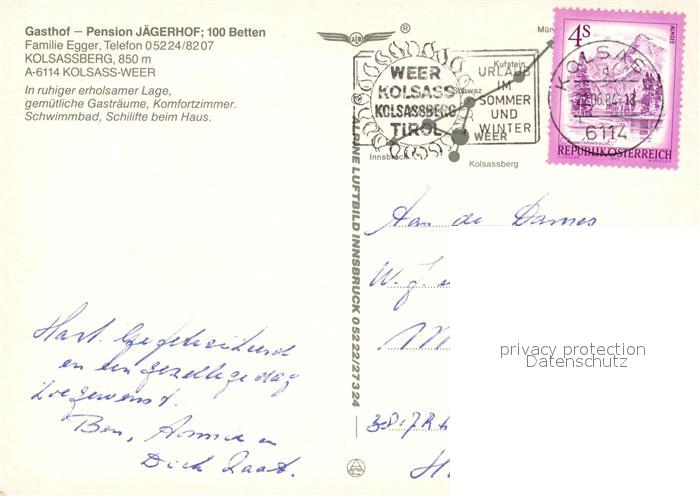 Gasthof – Pension JÄGERHOF; 100 Betten
Familie Egger, Telefon 05224/8207
KOLSASSBERG, 850 m
A-6114 KOLSASS-WEER
In ruhiger erholsamer Lage,
gemütliche Gasträume, Komfortzimmer.
Schwimmbad, Schilifte beim Haus.
Hart. gefeliciteerd
en een gezellige dag
toegewenst.
Ben, Annie en
Dick
ALPINE LUFTBILD INNSBRUCK 05222/27324
®
Mün
Kufstein
Schwaz
WEER
Innsbruck
Kolsassberg
WEER
KOLSASS
KOLSASSBERG
TIROL
URLAUB
IM
SOMMER
UND
WINTER
KOLSASS
22.06.84-18
6114
4 S
ALMSEE
REPUBLIK ÖSTERREICH
Aan de Dames
W. J.
privacy protection
Datenschutz